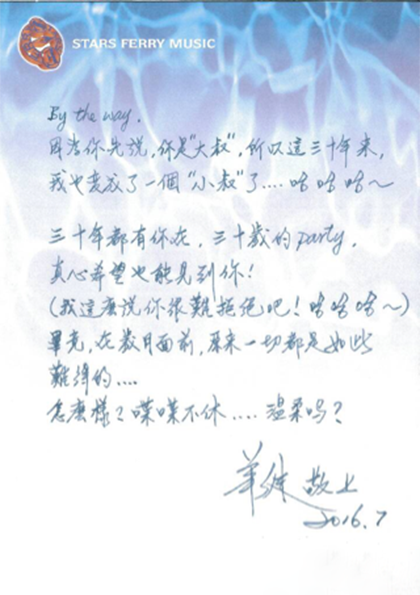 STARS FERRY MUSIC
By the way,
因為你先說,你是"大叔",所以這三十年來,
我也變成了一個"小叔"了....哈哈哈~
三十年都有你在,三十歲的party,
真心希望也能見到你!
(我這麼說你很難拒絕吧!哈哈哈~)
畢竟,在歲月面前,原來一切都是如此
難得的....
怎麼樣?喋喋不休....溫柔嗎?
敬上
2016.7